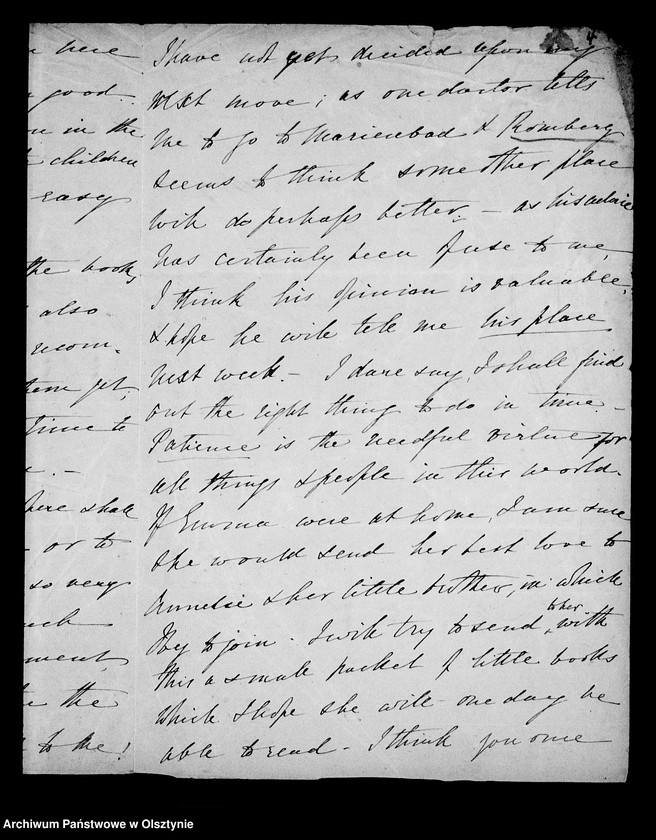 4
here
good.
in the
children
easy
the books,
also
recom-
yet,
time to
here shall
or to
so very
ment
the
to me!
I have not yet decided upon my
next move; as one doctor tells
me to go to Marienbad & Romberg
seems to think some other place
will do perhaps better. – as his advice
has certainly been of use to me,
I think his opinion is valuable,
& hope he will tell me his place
next week. – I dare say, I shall find
out the right thing to do in time. –
Patience is the needful virtue for
all things & people in this world.
If Emma were at home, I am sure
she would send her best love to
& her little brother, in which
to join. I will try to send to her with
this a small packet of little books
which I hope she will one day be
able to read – I think you once
Archiwum Państwowe w Olsztynie